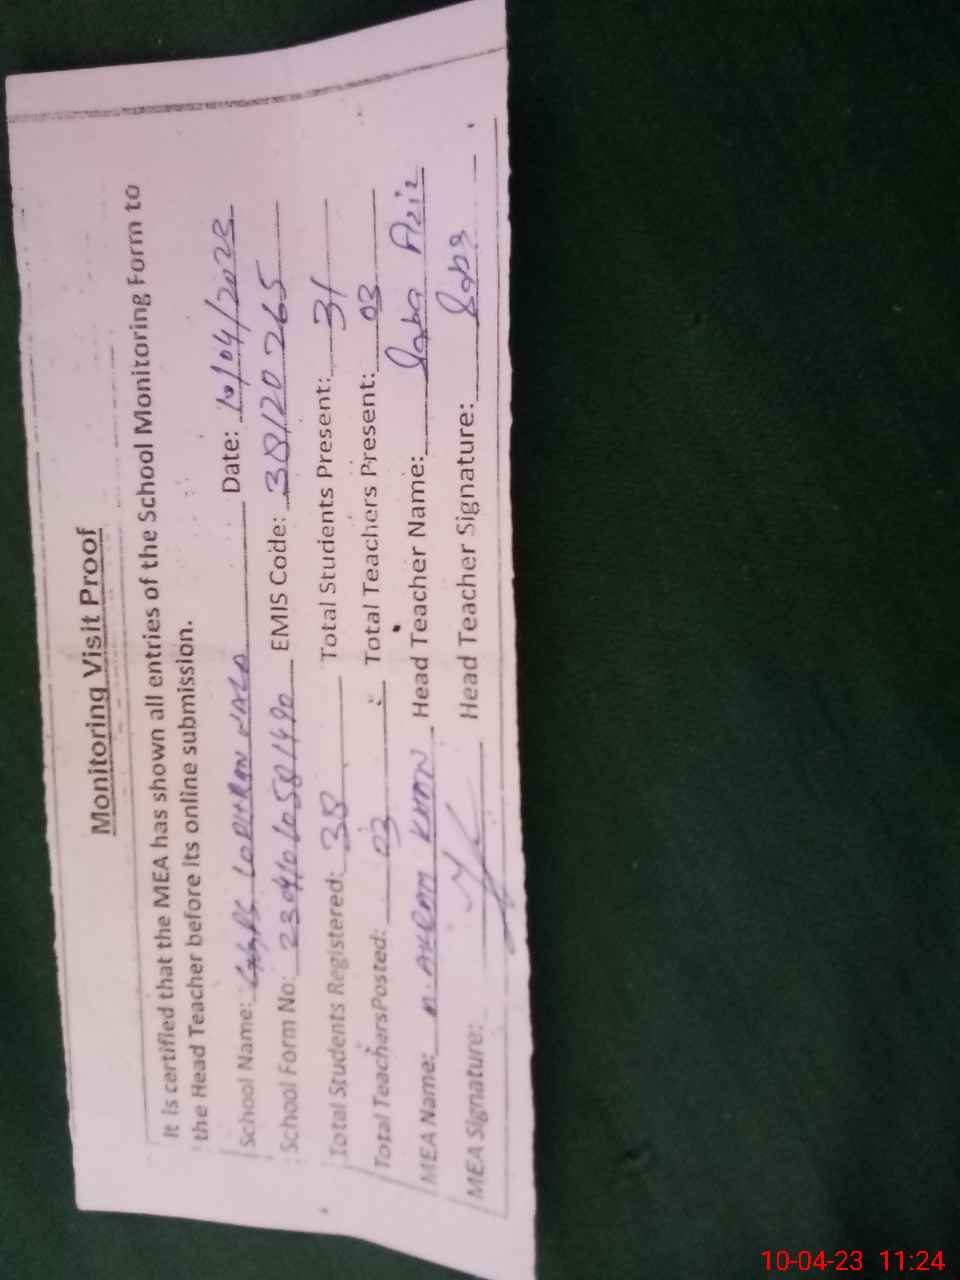 Monitoring Visit Proof
It is certified that the MEA has shown all entries of the School Monitoring Form to
the Head Teacher before its online submission.
School Name: GGPS LODHRAN Date: 10/04/2023
School Form No: EMIS Code: 38120265
Total Students Registered: 38 Total Students Present: 31
Total TeachersPosted: 03 Total Teachers Present: 03
MEA Name: M. AKRAM KHAN Head Teacher Name: Saba Aziz
MEA Signature: Head Teacher Signature: Saba
10-04-23 11:24